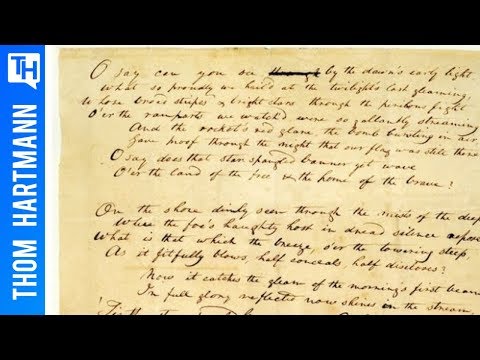 TH
THOM HARTMANN
O say can you see through by the dawn's early light,
What so proudly we hail'd at the twilight's last gleaming,
Whose broad stripes & bright stars through the perilous fight
O'er the ramparts we watch'd, were so gallantly streaming?
And the rocket's red glare, the bomb bursting in air,
Gave proof through the night that our flag was still there
O say does that star spangled banner yet wave
O'er the land of the free & the home of the brave?
On the shore dimly seen through the mists of the deep,
Where the foe's haughty host in dread silence reposes,
What is that which the breeze, o'er the towering steep,
As it fitfully blows, half conceals, half discloses?
Now it catches the gleam of the morning's first beam,
In full glory reflected now shines in the stream,